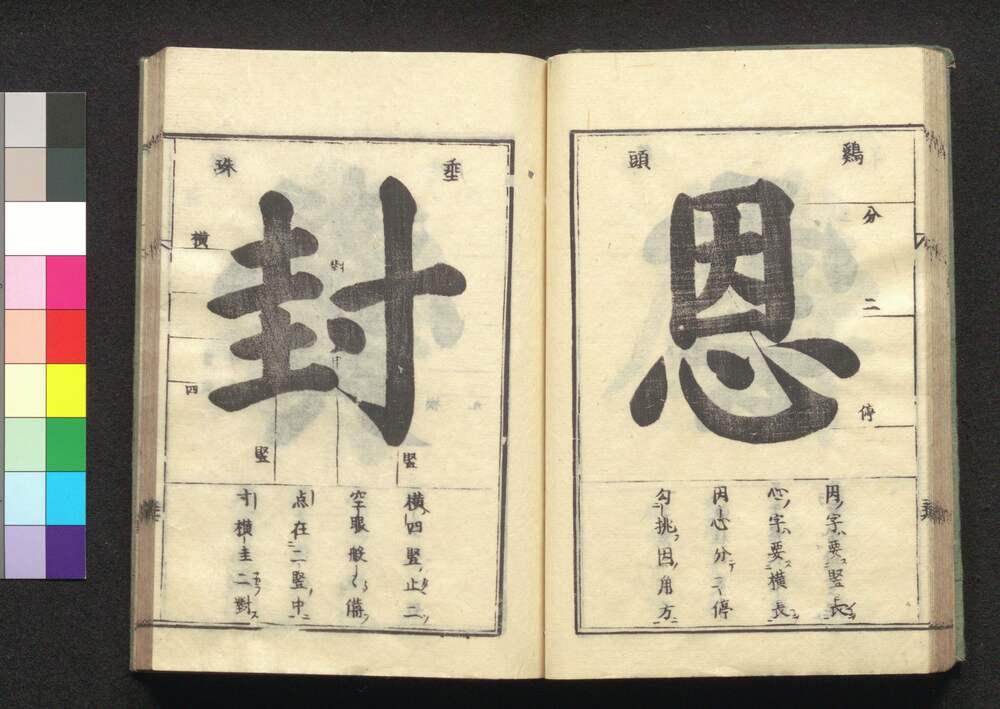 鷄頭
恩
分二停
因字要竪長
心字要横長
因心分二停
勾挑因角方
垂珠
封
横四
竪竪
横四竪止二
空眼般〻備
点在二竪中
寸横圭二對